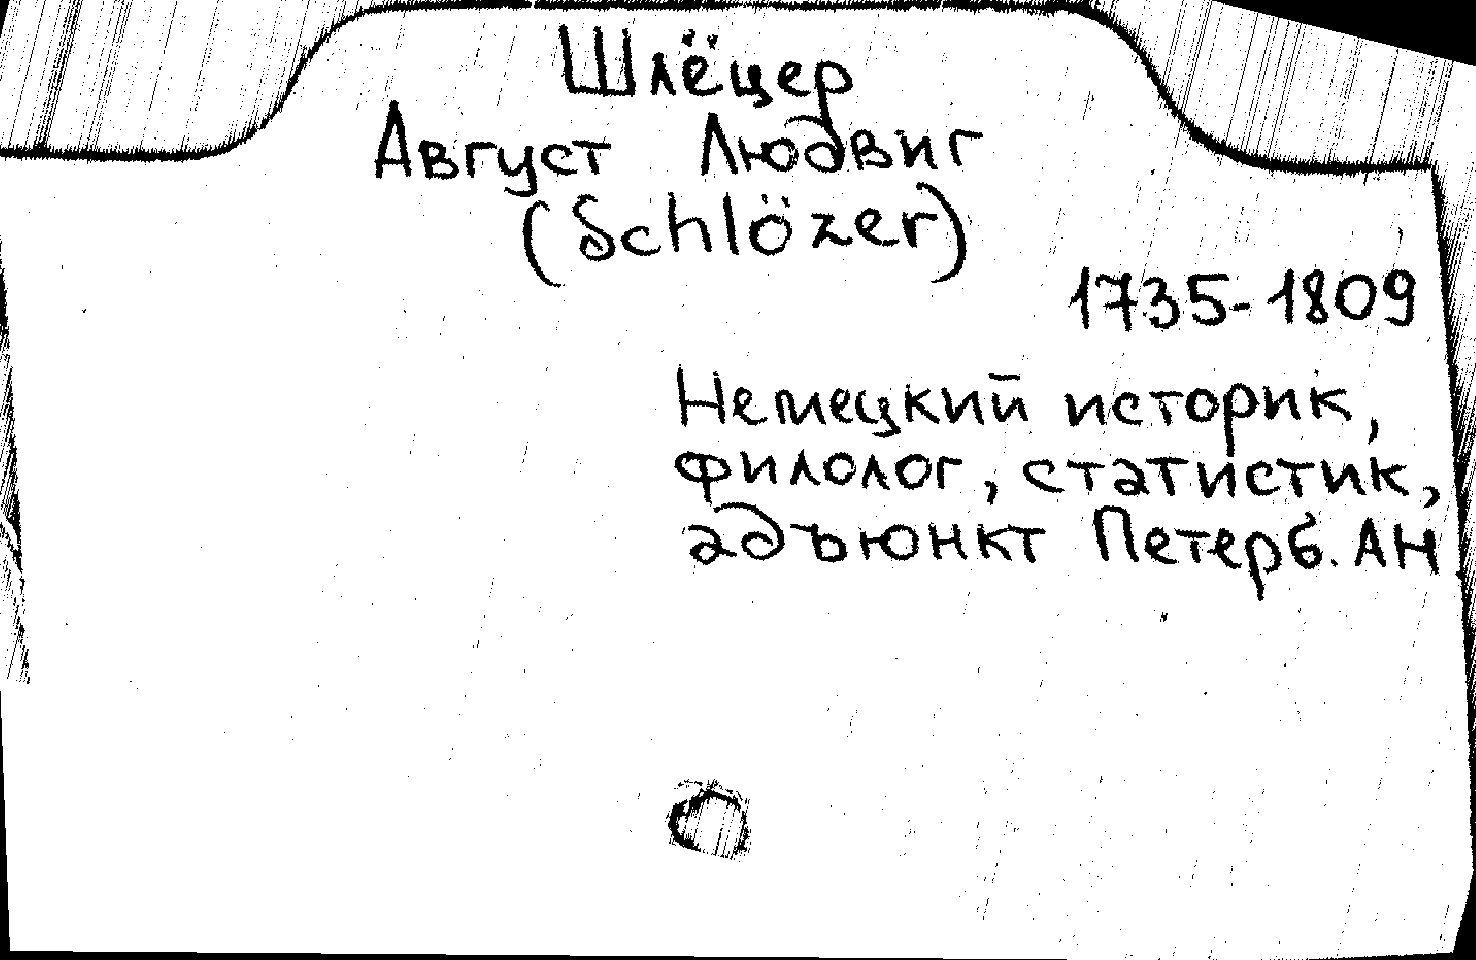 Шлёцер
Август Людвиг
(Schlözer)
1735-1809
Немецкий историк,
филолог, статистик,
адъюнкт Петерб. АН